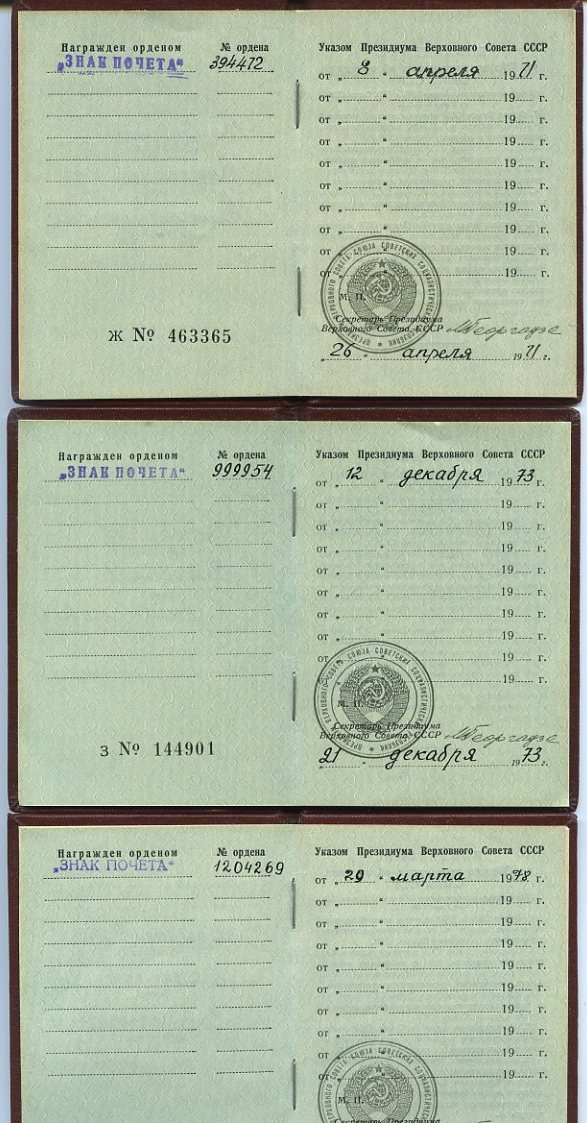 Награжден орденом № ордена
„ЗНАК ПОЧЕТА“ 394472
Указом Президиума Верховного Совета СССР
от „ 8 “ апреля 1971 г.
от „ “ 19 г.
от „ “ 19 г.
от „ “ 19 г.
от „ “ 19 г.
от „ “ 19 г.
от „ “ 19 г.
от „ “ 19 г.
от „ “ 19 г.
от „ “ 19 г.
ПРЕЗИДИУМ ВЕРХОВНОГО СОВЕТА СОЮЗА СОВЕТСКИХ СОЦИАЛИСТИЧЕСКИХ РЕСПУБЛИК
М. П.
Секретарь Президиума
Верховного Совета СССР МГеоргадзе
„ 26 “ апреля 1971 г.
Ж № 463365
Награжден орденом № ордена
„ЗНАК ПОЧЕТА“ 999954
Указом Президиума Верховного Совета СССР
от „ 12 “ декабря 1973 г.
от „ “ 19 г.
от „ “ 19 г.
от „ “ 19 г.
от „ “ 19 г.
от „ “ 19 г.
от „ “ 19 г.
от „ “ 19 г.
от „ “ 19 г.
от „ “ 19 г.
ПРЕЗИДИУМ ВЕРХОВНОГО СОВЕТА СОЮЗА СОВЕТСКИХ СОЦИАЛИСТИЧЕСКИХ РЕСПУБЛИК
М. П.
Секретарь Президиума
Верховного Совета СССР МГеоргадзе
„ 21 “ декабря 1973 г.
З № 144901
Награжден орденом № ордена
„ЗНАК ПОЧЕТА“ 1204269
Указом Президиума Верховного Совета СССР
от „ 29 “ марта 1978 г.
от „ “ 19 г.
от „ “ 19 г.
от „ “ 19 г.
от „ “ 19 г.
от „ “ 19 г.
от „ “ 19 г.
от „ “ 19 г.
от „ “ 19 г.
от „ “ 19 г.
ВЕРХОВНОГО СОВЕТА СОЮЗА СОВЕТСКИХ СОЦИАЛИСТИЧЕСКИХ
М. П.
Секретарь Президиума